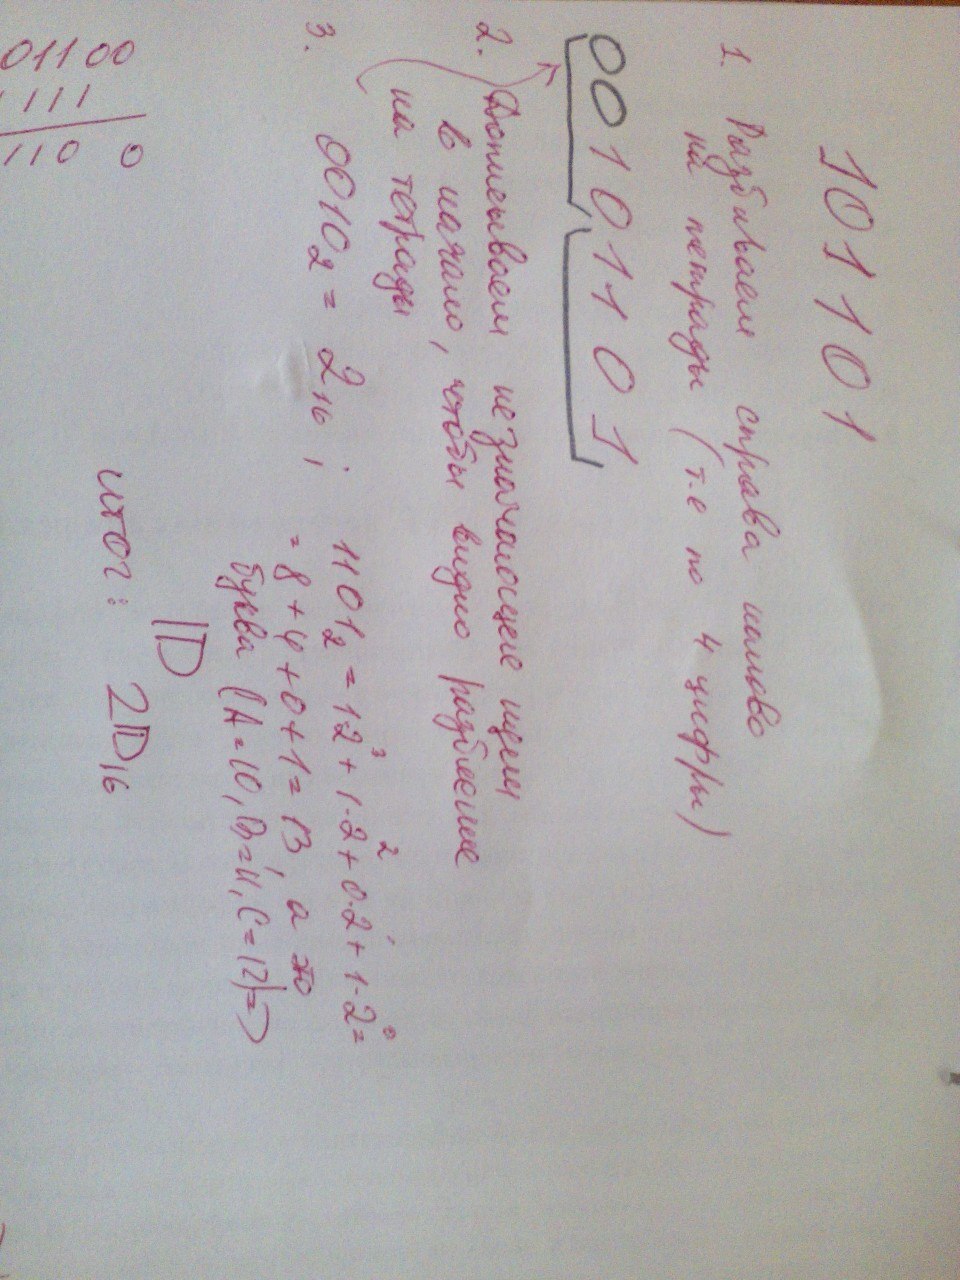 101101
1. Разбиваем справа налево
на тетрады (т.е по 4 цифры)
00101101
2. Дописываем незначащие нули
в начало, чтобы видно разбиение
на тетрады
3. 0010₂ = 2₁₆ ; 1101₂ = 1·2³ + 1·2² + 0·2¹ + 1·2⁰ =
= 8 + 4 + 0 + 1 = 13, а это
буква (A=10, B=11, C=12) =>
D
итог: 2D₁₆
01100
1111
110 0